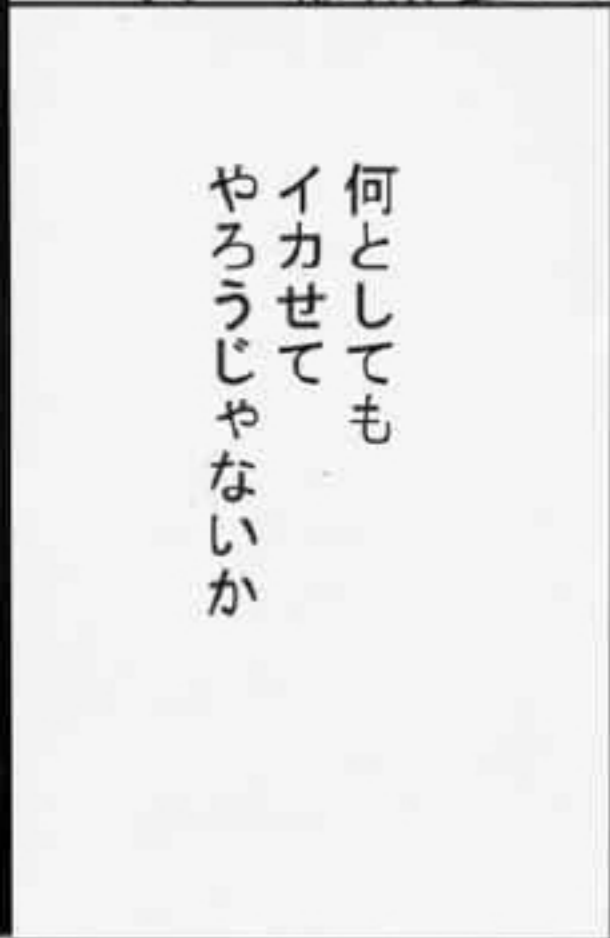 何としても
イカせて
やろうじゃないか